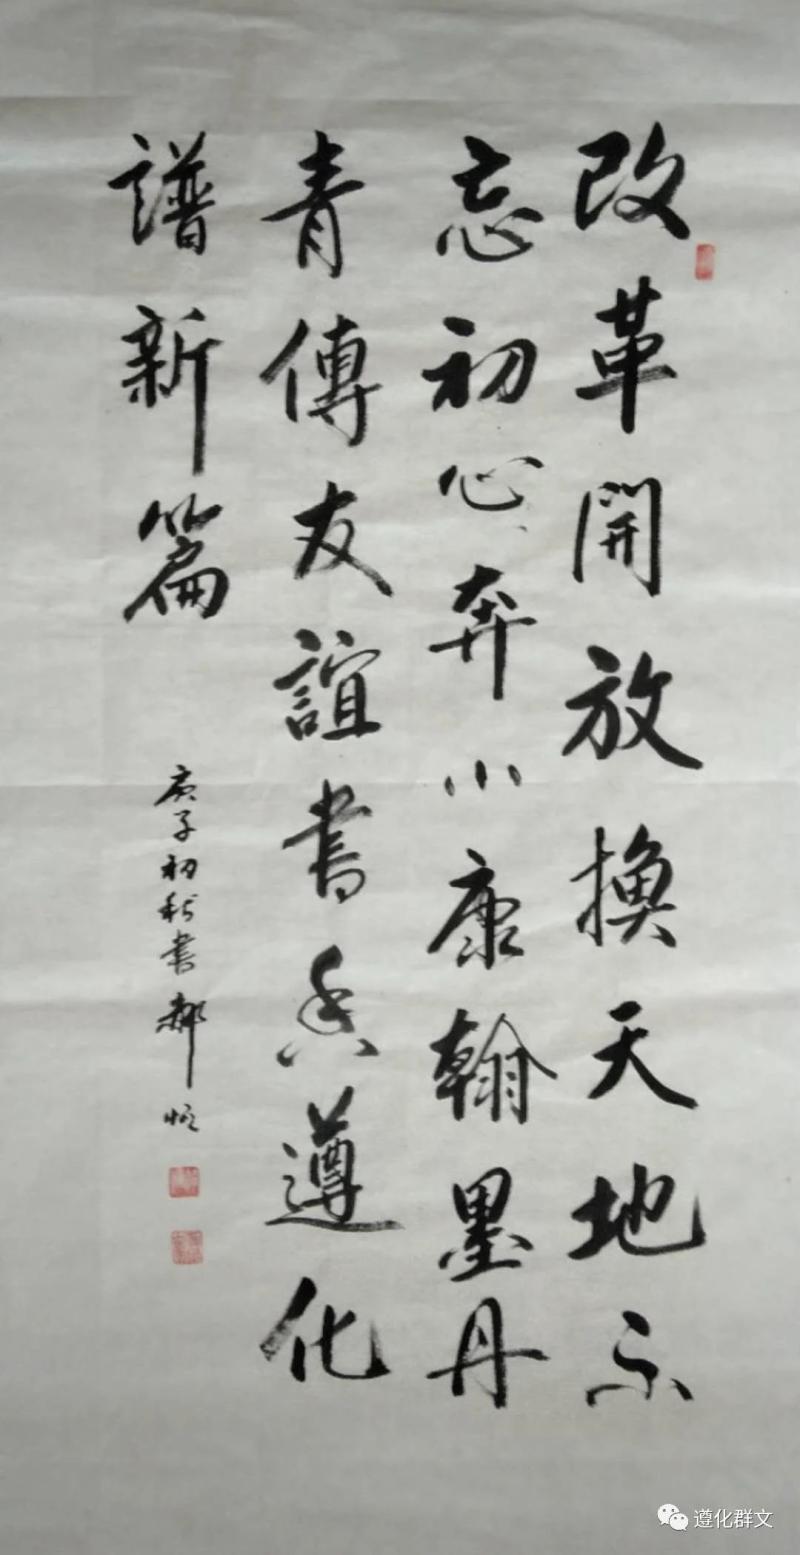 改革開放換天地不
忘初心奔小康翰墨丹
青傳友誼書香遵化
譜新篇
庚子初秋書郝恒
遵化群文